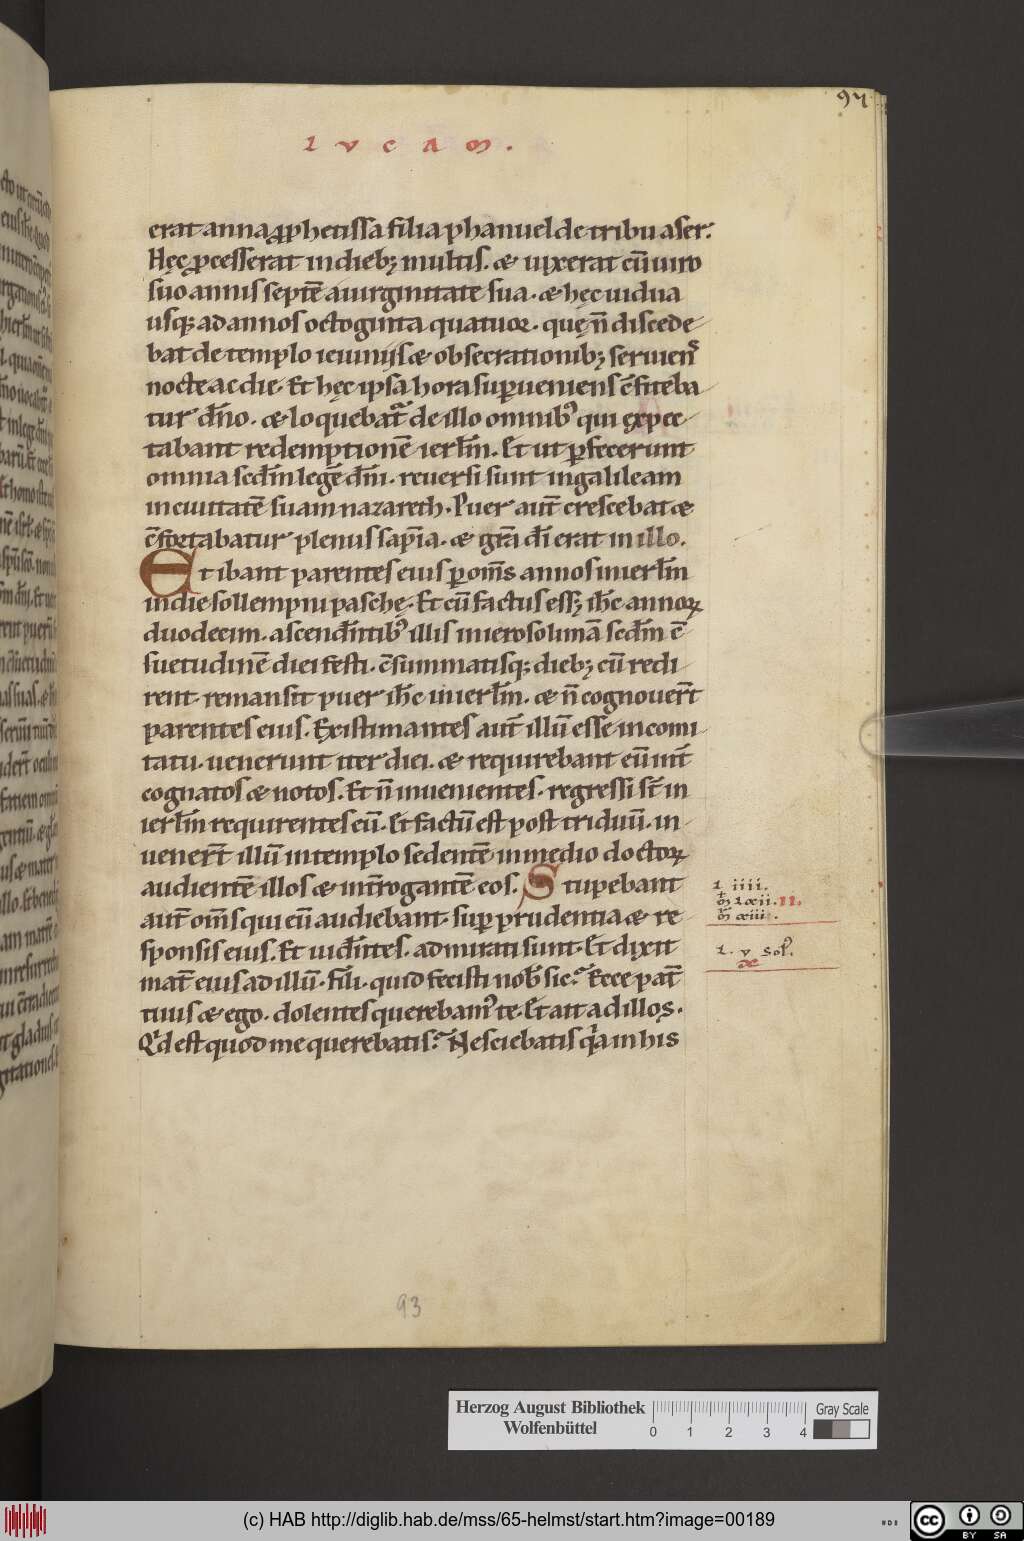 97
LVCAM.
erat anna ꝓphetissa filia phanuel de tribu aser.
Hęc ꝓcesserat in dieb; multis. & uixerat cū uiro
suo annis septē a uirginitate sua. & hęc uidua
usq; ad annos octoginta quatuor. quę n̄ discede
bat de templo ieiuniis & obsecrationib; seruiens
nocte ac die. Et hęc ipsa hora suꝑueniens c̄fiteba
tur dn̄o. & loquebat᷑ de illo omnibꝰ qui exspec
tabant redemptionē ierl̄m. Et ut ꝑfecerunt
omnia scd̄m legē dn̄i. reuersi sunt in galileam
in ciuitatē suam nazareth. Puer aut̄ crescebat &
c̄fortabatur plenus sap̄ia. & gr̄a dī erat in illo.
Et ibant parentes eius ꝑ om̄s annos in ierl̄m
in die sollempni paschę. Et cū factus ess; ih̄c annoꝝ
duodecim. ascend̄ntibꝰ illis in ierosolimā scd̄m c̄
suetudinē diei festi. c̄summatisq; dieb; cū redi
rent. remansit puer ih̄c in ierl̄m. & n̄ cognouer̄t
parentes eius. Existimantes aut̄ illū esse in comi
tatu. uenerunt iter diei. & requirebant eū int̄
cognatos & notos. Et n̄ inuenientes. regressi st̄ in
ierl̄m requirentes eū. Et factū est post triduū. in
uener̄t illū in templo sedentē in medio doctoꝝ
audientē illos & int̄rogantē eos. Stupebant
aut̄ om̄s qui eū audiebant. suꝑ prudentia & re
sponsis eius. Et uid̄ntes. admirati sunt. Et dixit
mat̄ eius ad illū. Fili. quid fecisti nob̄ sic? Ecce pat̄
tuus & ego. dolentes querebamꝰ te. Et ait ad illos.
Qd est quod me querebatis? Nesciebatis q̄a in his
l iiii.
lxii. II.
xiiii.
l. v sol.
93
Herzog August Bibliothek
Wolfenbüttel
0 1 2 3 4
Gray Scale
(c) HAB http://diglib.hab.de/mss/65-helmst/start.htm?image=00189
cc BY SA